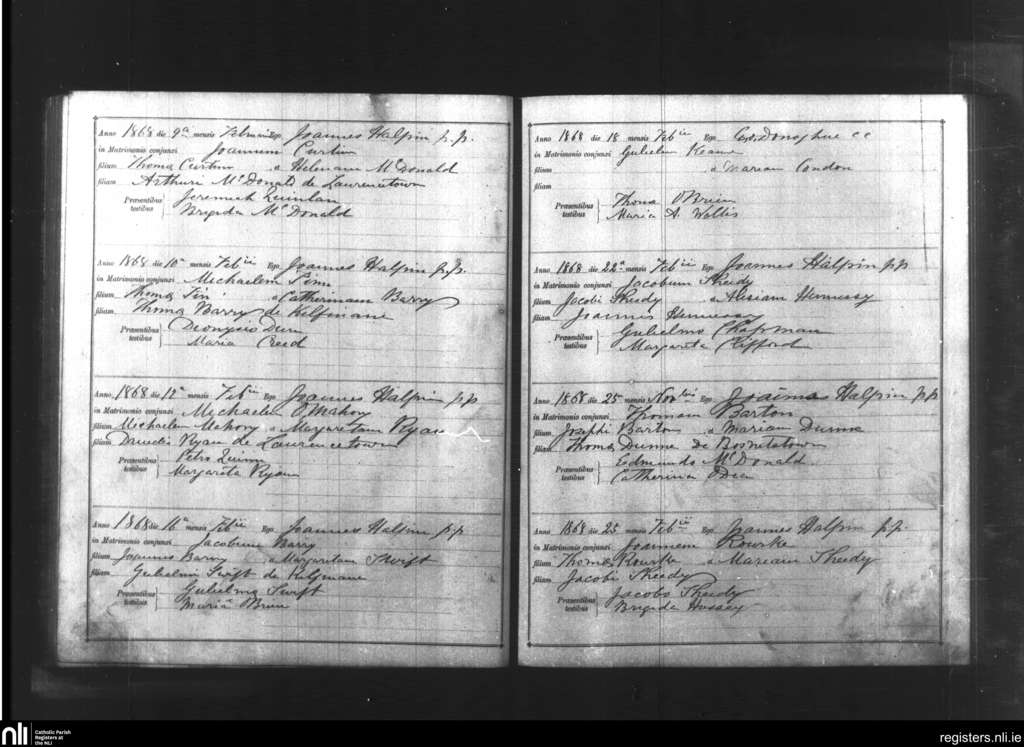 Anno 1868 die 9a mensis Februarii Ego Joannes Halpin p.p.
in Matrimonio conjunxi Joannem Curtin
filium Thoma Curtin a Helenam McDonald
filiam Arthuri McDonald de Laurencetown
Præsentibus Jeremiah Quinlan
testibus Brigida McDonald
Anno 1868 die 10a mensis Febii Ego Joannes Halpin p.p.
in Matrimonio conjunxi Michaelem
filium Thoma a Catherinam Barry
filiam Thoma Barry de Kilfinane
Præsentibus Dionysio
testibus Maria Creed
Anno 1868 die mensis Febii Ego Joannes Halpin p.p
in Matrimonio conjunxi Michaelem O'Mahony
filium Michaelem Mahony a Margaretam Ryan
filiam Ryan de Laurencetown
Præsentibus Petro Quinn
testibus Margareta Ryan
Anno 1868 die 16a mensis Febii Ego Joannes Halpin p.p
in Matrimonio conjunxi Jacobum Barry
filium Joannis Barry a Margaretam Swift
filiam Gulielmi Swift de Kilfinane
Præsentibus Gulielmo Swift
testibus Maria
Anno 1868 die 18 mensis Febii Ego Donoghue cc
in Matrimonio conjunxi Gulielm Keane
filium a Mariam Condon
filiam
Præsentibus Thoma O'Brien
testibus Maria A. Wallis
Anno 1868 die 22a mensis Febii Ego Joannes Halpin p.p
in Matrimonio conjunxi Jacobum Sheedy
filium Jacobi Sheedy a Hennessy
filiam Joannis Hennessy
Præsentibus Gulielmo Chapman
testibus Margareta Clifford
Anno 1868 die 25 mensis Ego Halpin p.p
in Matrimonio conjunxi Thomam Barton
filium Josephi Barton a Mariam Dunne
filiam Thoma Dunne de
Præsentibus Edmundo McDonald
testibus Catherina O'Dea
Anno 1868 die 25 mensis Febii Ego Joannes Halpin p.p.
in Matrimonio conjunxi Joannem Rourke
filium Thoma Rourke a Mariam Sheedy
filiam Jacobi Sheedy
Præsentibus Jacobo Sheedy
testibus Brigida Hussey
nli Catholic Parish
Registers at
the NLI
registers.nli.ie